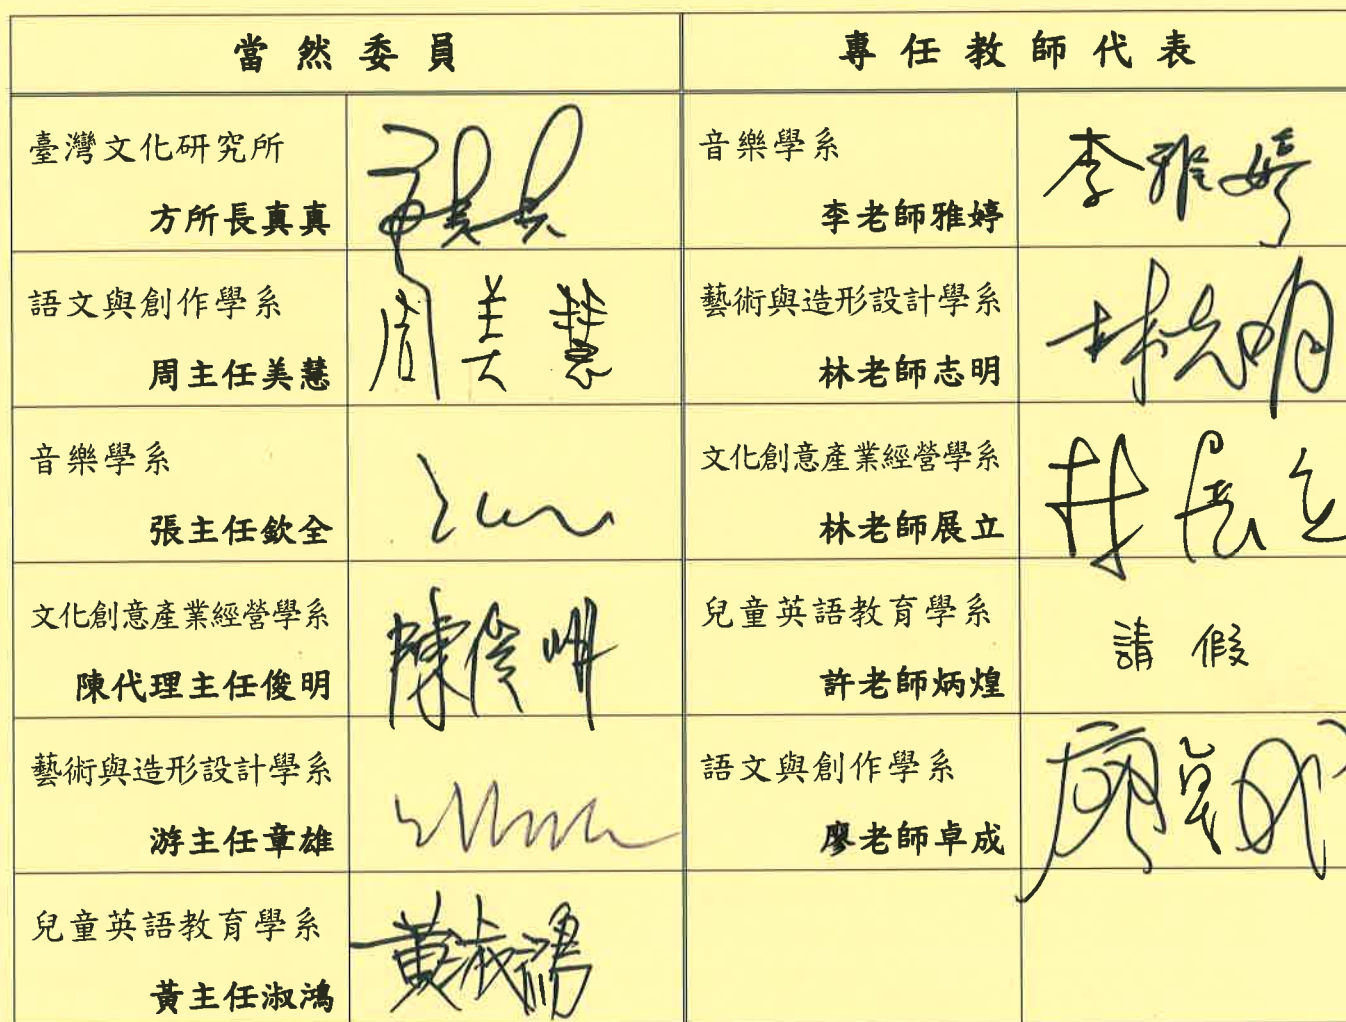 當然委員
專任教師代表
臺灣文化研究所
方所長真真
音樂學系
李老師雅婷
李雅婷
語文與創作學系
周主任美慧
周美慧
藝術與造形設計學系
林老師志明
林志明
音樂學系
張主任欽全
文化創意產業經營學系
林老師展立
林展立
文化創意產業經營學系
陳代理主任俊明
陳俊明
兒童英語教育學系
許老師炳煌
請假
藝術與造形設計學系
游主任章雄
語文與創作學系
廖老師卓成
廖卓成
兒童英語教育學系
黃主任淑鴻
黃淑鴻